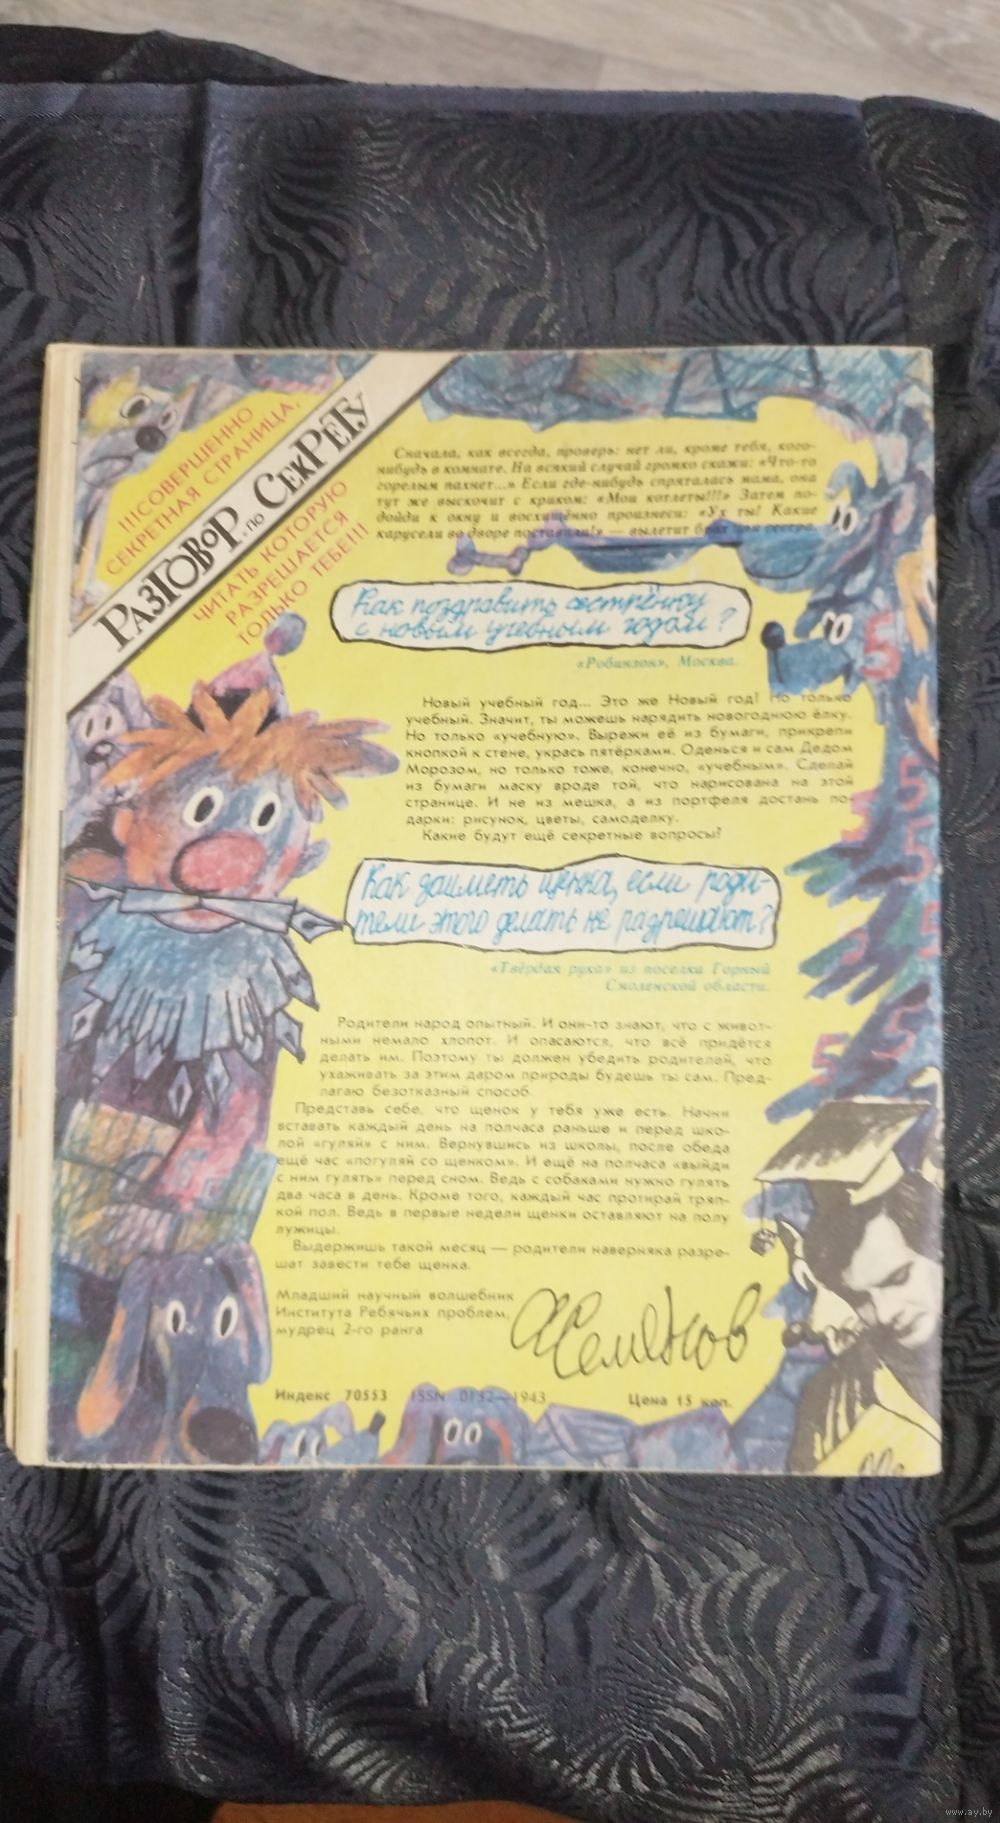 !!!СОВЕРШЕННО
СЕКРЕТНАЯ СТРАНИЦА,
РАЗГОВОР ПО СЕКРЕТУ
ЧИТАТЬ КОТОРУЮ
РАЗРЕШАЕТСЯ
ТОЛЬКО ТЕБЕ!!!
Сначала, как всегда, проверь: нет ли, кроме тебя, кого-
нибудь в комнате. На всякий случай громко скажи: «Что-то
горелым пахнет...» Если где-нибудь спряталась мама, она
тут же выскочит с криком: «Мои котлеты!!!» Затем по-
дойди к окну и восхищённо произнеси: «Ух ты! Какие
карусели во дворе поставили!» — вылетит брат или сестра.
Как поздравить сестрёнку
с новым учебным годом?
«Робинзон», Москва.
Новый учебный год... Это же Новый год! Но только
учебный. Значит, ты можешь нарядить новогоднюю ёлку.
Но только «учебную». Вырежи её из бумаги, прикрепи
кнопкой к стене, укрась пятёрками. Оденься и сам Дедом
Морозом, но только тоже, конечно, «учебным». Сделай
из бумаги маску вроде той, что нарисована на этой
странице. И не из мешка, а из портфеля достань по-
дарки: рисунок, цветы, самоделку.
Какие будут ещё секретные вопросы?
Как заиметь щенка, если роди-
тели этого делать не разрешают?
«Твёрдая рука» из поселка Горный
Смоленской области.
Родители народ опытный. И они-то знают, что с живот-
ными немало хлопот. И опасаются, что всё придётся
делать им. Поэтому ты должен убедить родителей, что
ухаживать за этим даром природы будешь ты сам. Пред-
лагаю безотказный способ.
Представь себе, что щенок у тебя уже есть. Начни
вставать каждый день на полчаса раньше и перед шко-
лой «гуляй» с ним. Вернувшись из школы, после обеда
ещё час «погуляй со щенком». И ещё на полчаса «выйди
с ним гулять» перед сном. Ведь с собаками нужно гулять
два часа в день. Кроме того, каждый час протирай тряп-
кой пол. Ведь в первые недели щенки оставляют на полу
лужицы.
Выдержишь такой месяц — родители наверняка разре-
шат завести тебе щенка.
Младший научный волшебник
Института Ребячьих проблем,
мудрец 2-го ранга
А Семёнов
Индекс 70553 ISSN 0132—1943 Цена 15 коп.
5
5
5
5
5
5
5
5
www.ay.by